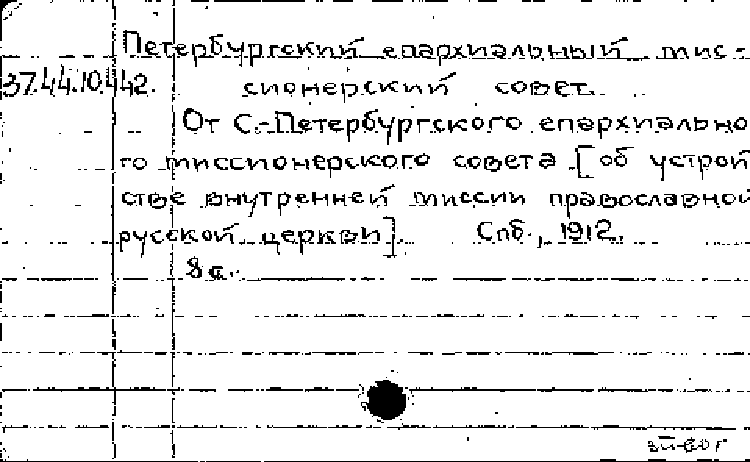 Петербургский епархиальный мис-
37.44.10.442. сионерский совет.
От С.-Петербургского епархиально
го миссионерского совета [об устрой
стве внутренней миссии православной
русской церкви]. Спб., 1912.
8 с.